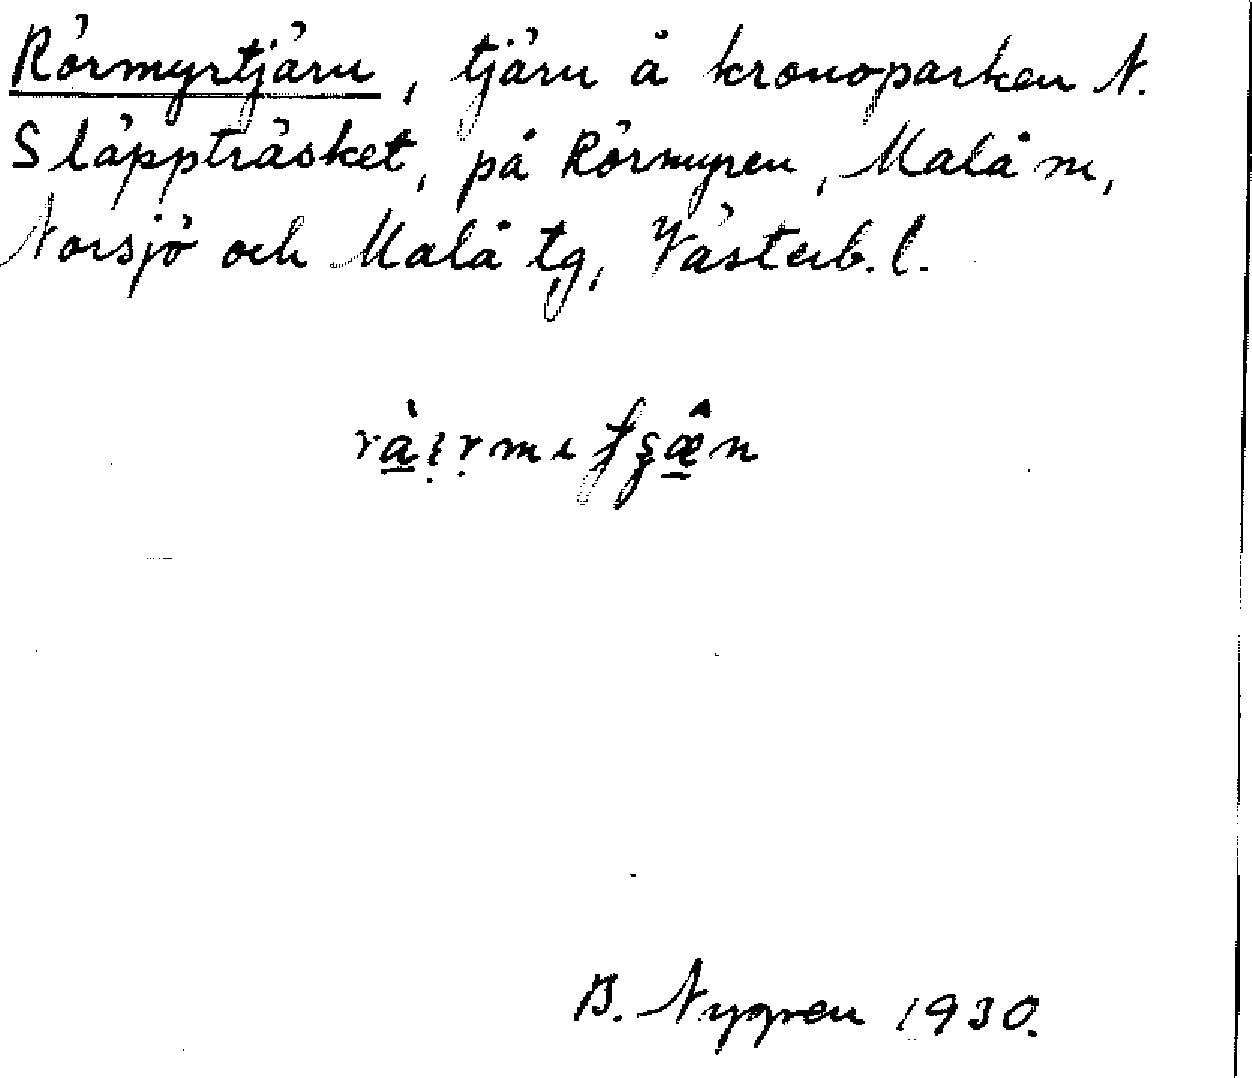 Rörmyrtjärn, tjärn å kronoparken N.
Släppträsket, på Rörmyren, Malå m,
Norsjö och Malå tg, Västerb. l.
B. Nygren 1930.